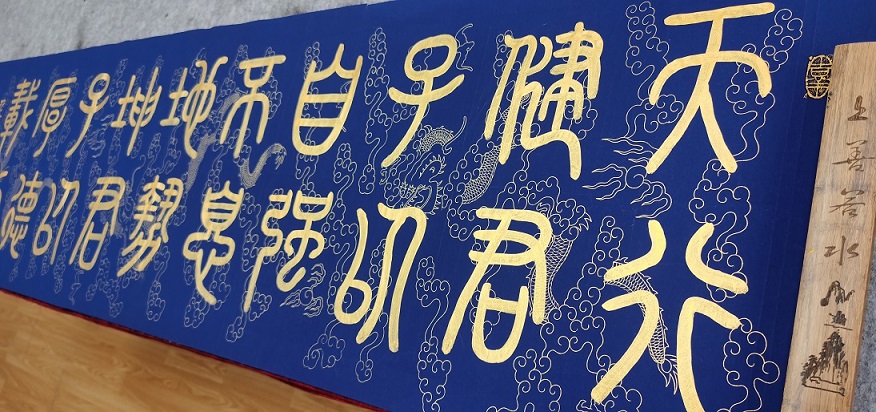 上善若水
天行
健君
子以
自强
不息
地勢
坤君
子以
厚德
載